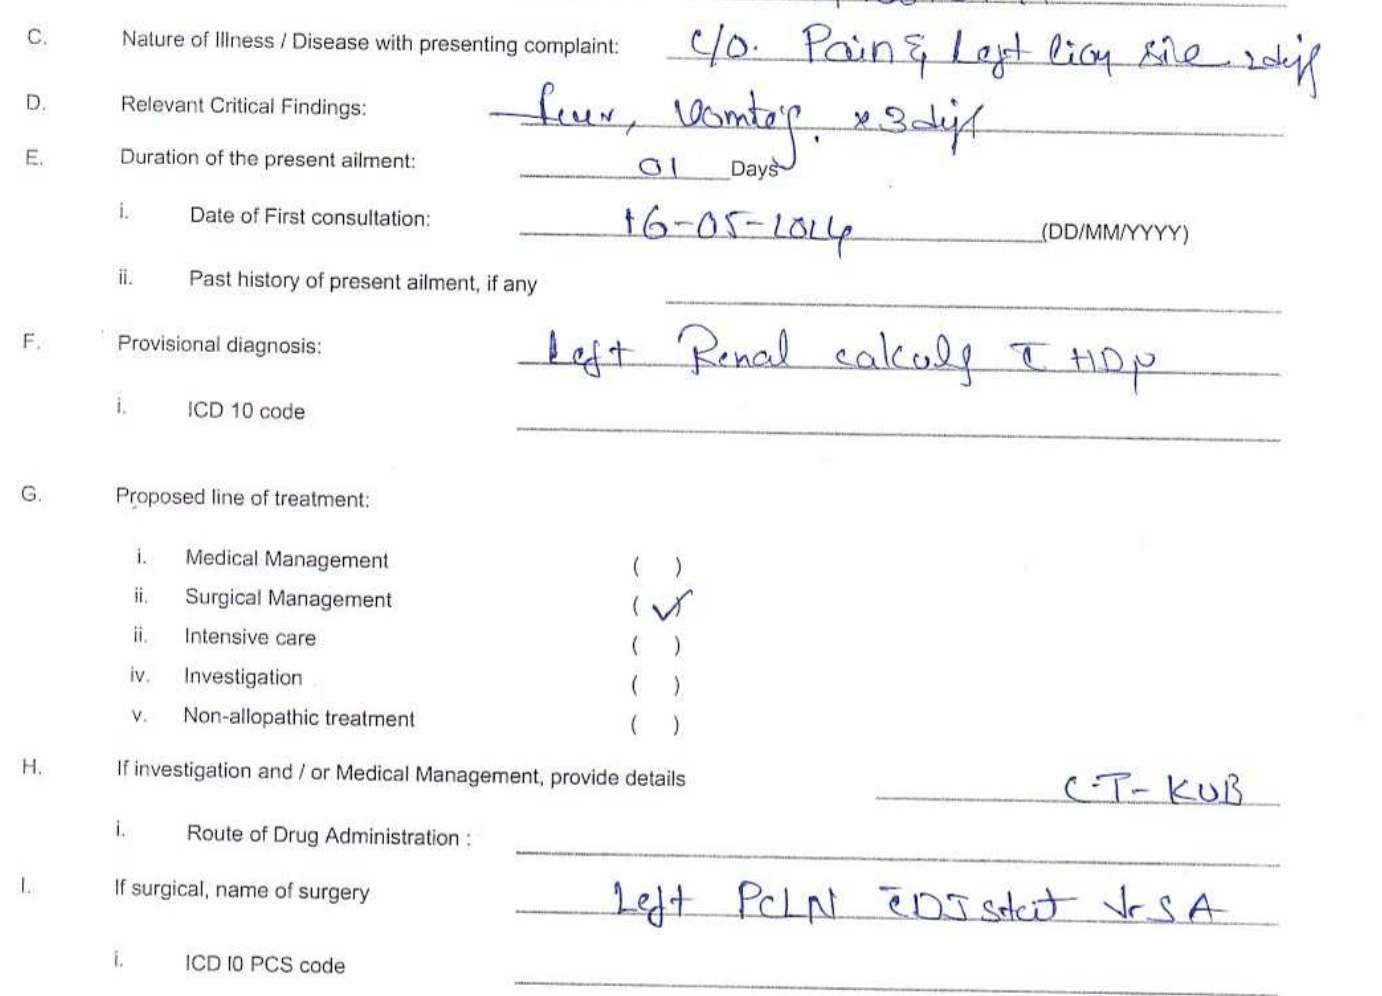 C. Nature of Illness / Disease with presenting complaint: C/O. Pain Left side
D. Relevant Critical Findings: fever, Vomting. x 3 days
E. Duration of the present ailment: 01 Days
i. Date of First consultation: 16-05-2024 (DD/MM/YYYY)
ii. Past history of present ailment, if any
F. Provisional diagnosis: Left Renal calculus c̄ HDN
i. ICD 10 code
G. Proposed line of treatment:
i. Medical Management ( )
ii. Surgical Management ( ✓ )
ii. Intensive care ( )
iv. Investigation ( )
v. Non-allopathic treatment ( )
H. If investigation and / or Medical Management, provide details C-T- KUB
i. Route of Drug Administration :
I. If surgical, name of surgery Left PCLN c̄ DJ SA
i. ICD I0 PCS code